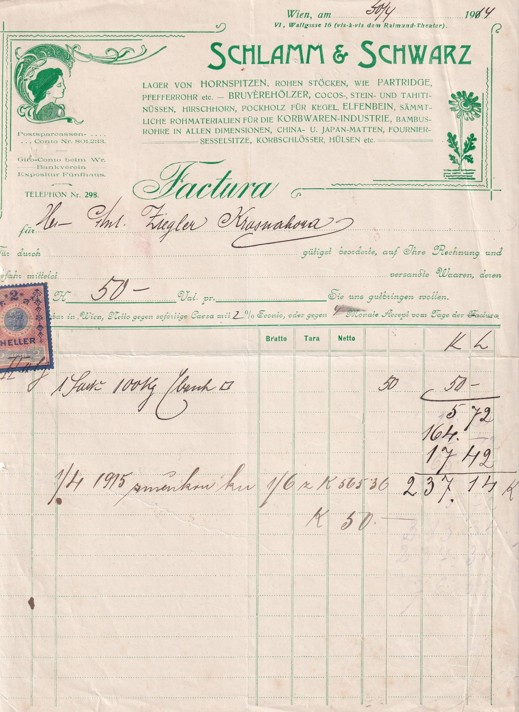 Wien, am 30/4 1914
VI., Wallgasse 16 (vis-à-vis dem Raimund-Theater).
SCHLAMM & SCHWARZ
LAGER VON HORNSPITZEN, ROHEN STÖCKEN, WIE PARTRIDGE,
PFEFFERROHR etc. — BRUYÈREHÖLZER, COCOS-, STEIN- UND TAHITI-
NÜSSEN, HIRSCHHORN, POCKHOLZ FÜR KEGEL, ELFENBEIN, SÄMMT-
LICHE ROHMATERIALIEN FÜR DIE KORBWAREN-INDUSTRIE, BAMBUS-
ROHRE IN ALLEN DIMENSIONEN, CHINA- U. JAPAN-MATTEN, FOURNIER-
SESSELSITZE, KORBSCHLÖSSER, HÜLSEN etc.
Postsparcassen-
Conto Nr. 801.233.
Giro-Conto beim Wr.
Bankverein
Expositur Fünfhaus.
TELEPHON Nr. 298.
Factura
für Ziegler Krasnahora
für durch gütigst beorderte, auf Ihre Rechnung und
Gefahr mittelst versandte Waaren, deren
K 50— Val. pr. Sie uns gutbringen wollen.
bar in Wien, Netto gegen sofortige Cassa mit 2 % Sconto, oder gegen Monate Accept vom Tage der Factura
2
HELLER
Brutto Tara Netto K h
1 Sack 100 Kg 50 50—
5 72
164.—
17 42
1/4 1915 1/6 z K 56536 237.14 K
K 50.—